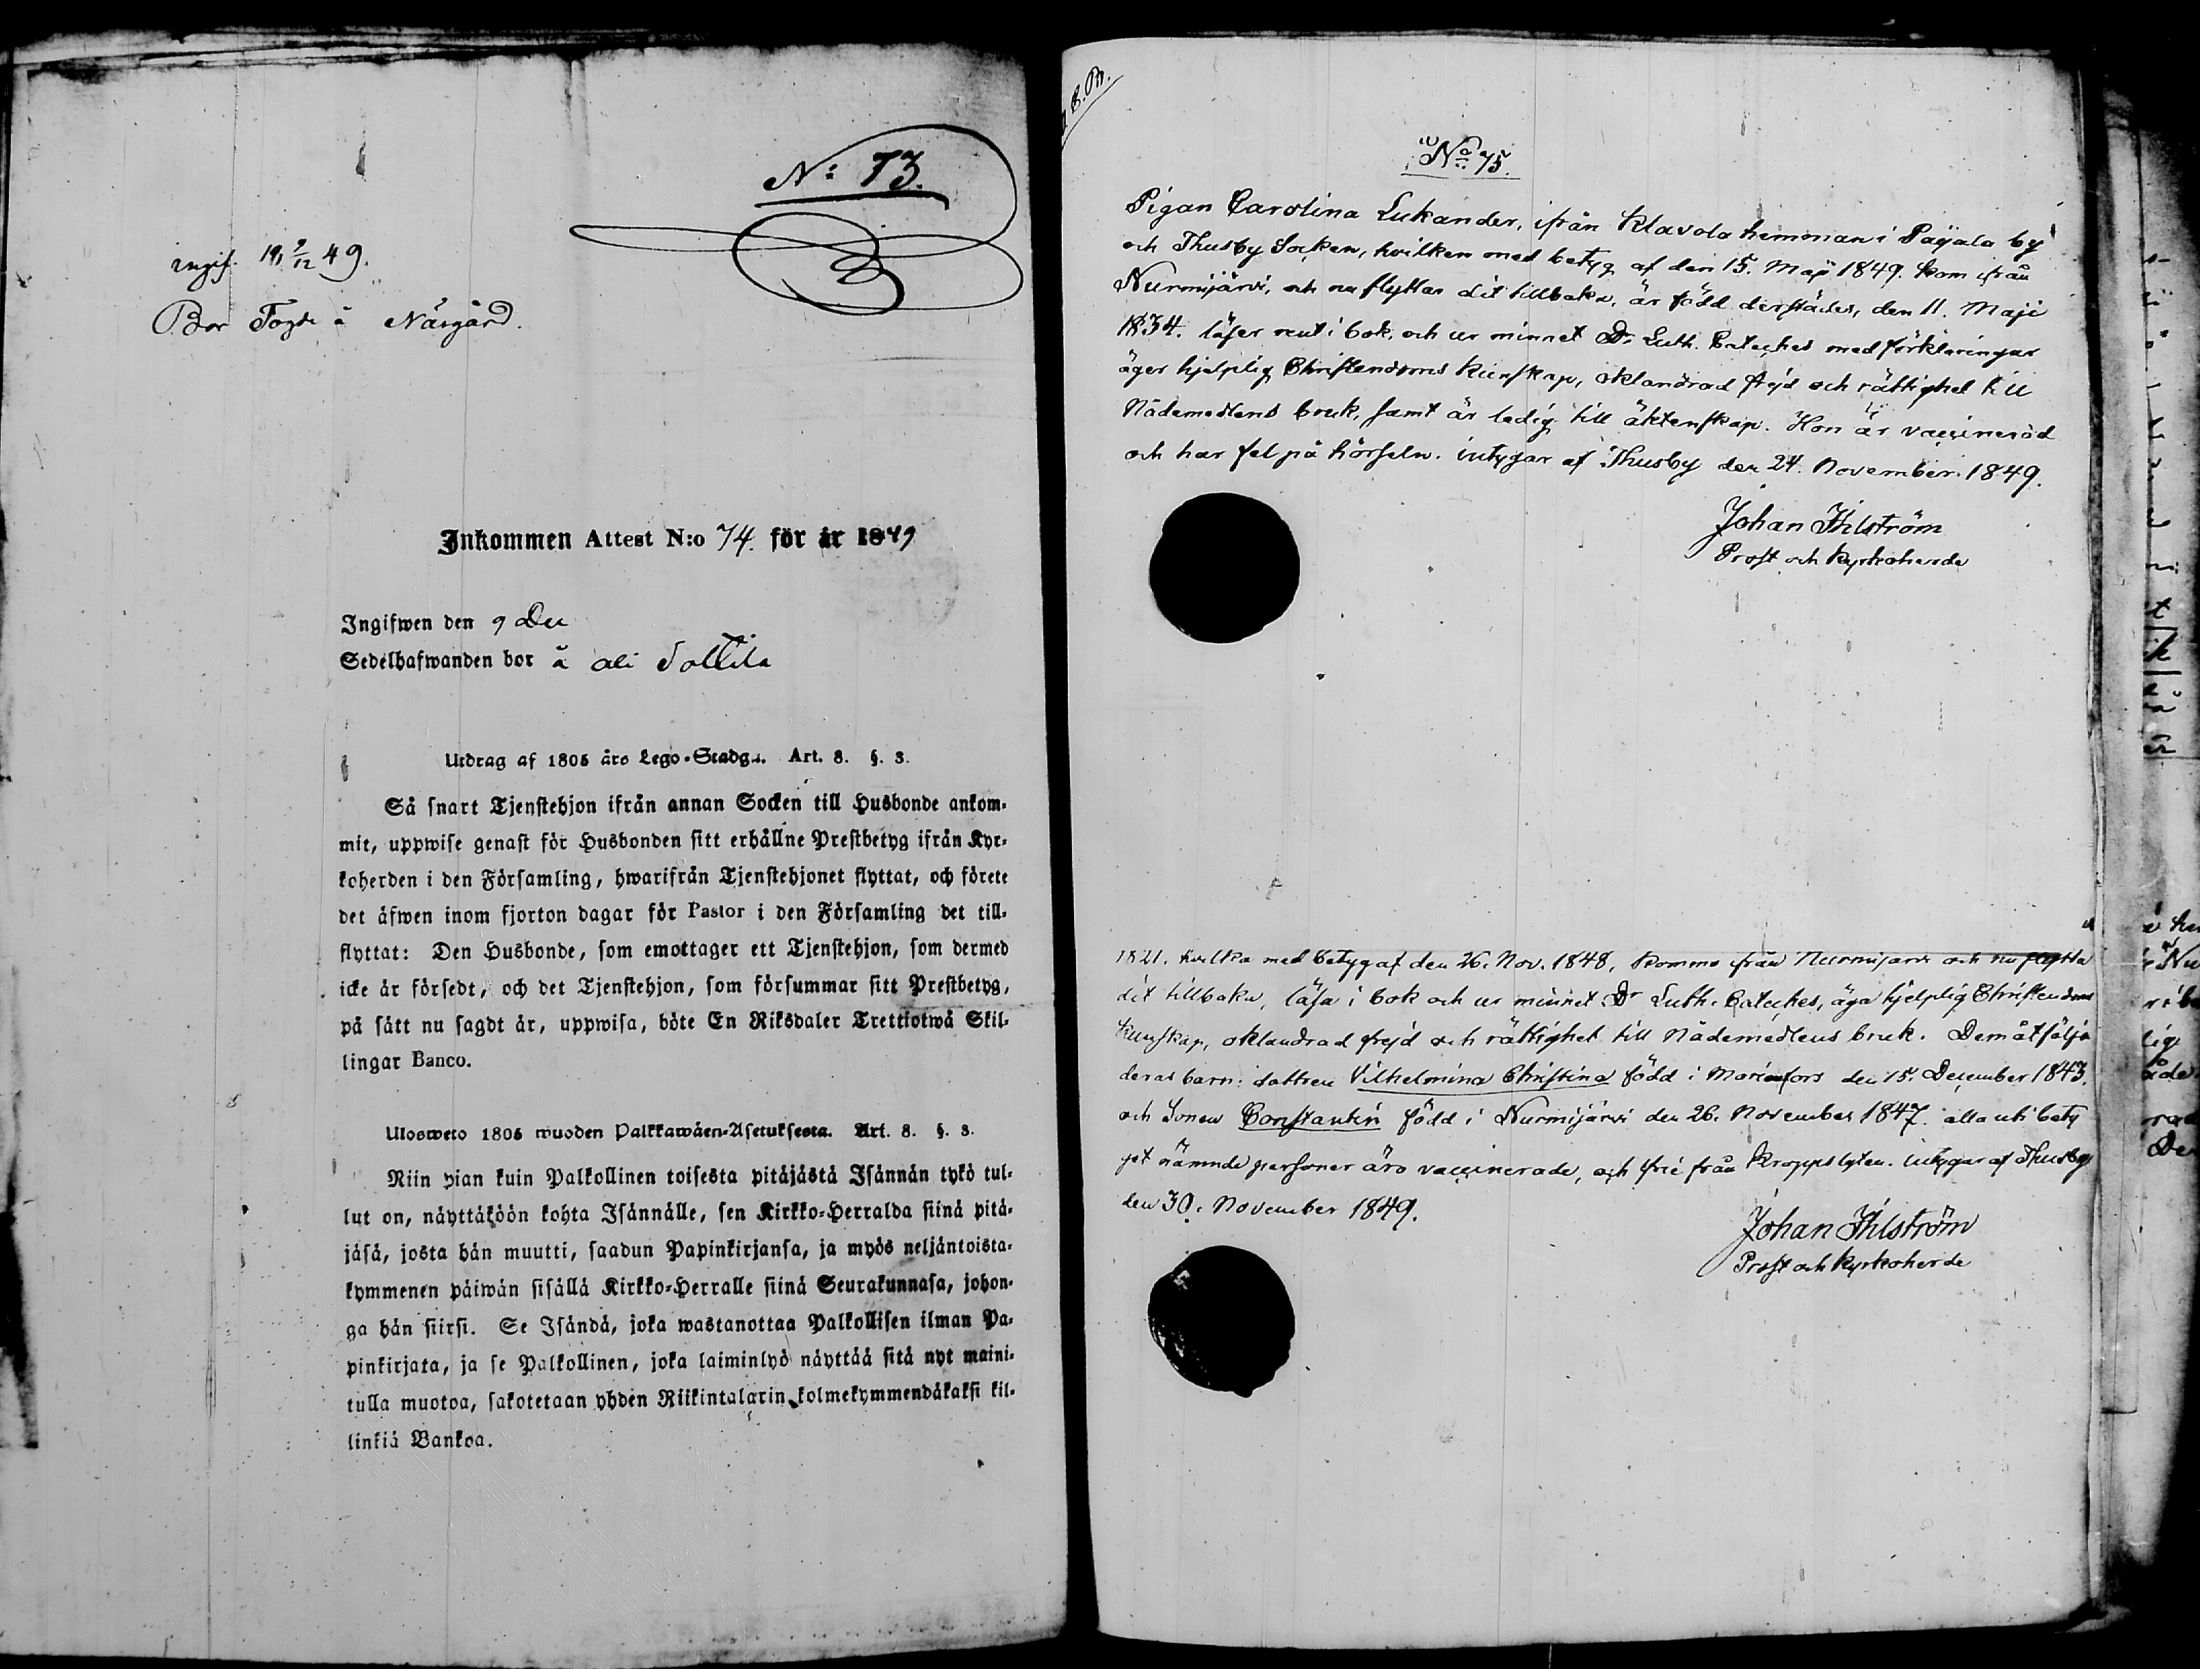 N:o 73.
ingif. 19 9/12 49.
Bor Togde å Näsgård.
Inkommen Attest N:o 74. för år 1849
Ingifwen den 9 Dec
Sedelhafwanden bor å ali Solttila
Utdrag af 1805 års Lego-Stadga. Art. 8. §. 3.
Så snart Tjenstehjon ifrån annan Socken till Husbonde ankom-
mit, uppwise genast för Husbonden sitt erhållne Prestbetyg ifrån Kyr-
koherden i den Församling, hwarifrån Tjenstehjonet flyttat, och förete
det äfwen inom fjorton dagar för Pastor i den Församling det till-
flyttat: Den Husbonde, som emottager ett Tjenstehjon, som dermed
icke är försedt, och det Tjenstehjon, som försummar sitt Prestbetyg,
på sätt nu sagdt är, uppwisa, böte En Riksdaler Trettiotwå Skil-
lingar Banco.
Ulosweto 1805 wuoden Palkkawäen-Asetuksesta. Art. 8. §. 3.
Niin pian kuin Palkollinen toisesta pitäjästä Isännän tykö tul-
lut on, näyttäköön kohta Isännälle, sen Kirkko-Herralda siinä pitä-
jäsä, josta hän muutti, saadun Papinkirjansa, ja myös neljäntoista-
kymmenen päiwän sisällä Kirkko-Herralle siinä Seurakunnasa, johon-
ga hän siirsi. Se Isändä, joka wastanottaa Palkollisen ilman Pa-
pinkirjata, ja se Palkollinen, joka laiminlyö näyttää sitä nyt maini-
tulla muotoa, sakotetaan yhden Riikintalarin kolmekymmendäkaksi kil-
linkiä Bankoa.
N:o 75.
Pigan Carolina Lukander, ifrån Klavola hemman i Pajala by
och Thusby Socken, hvilken med betyg af den 15. Maji 1849. kom ifrån
Nurmijärvi, och nu flyttar dit tillbaka, är född derstädes, den 11. Maji
1834. läser rent i bok, och ur minnet Dr Luth. Cateches med förklaringar
äger hjelplig Christendoms kunskap, oklandrad frejd och rättighet till
Nådemedlens bruk, samt är ledig till äktenskap. Hon är vaccinerad
och har fel på hörseln. intygar af Thusby den 24. November 1849.
Johan Ihlström
Prost och kyrkoherde
1821. hvilka med betyg af den 26. Nov. 1848, kommo ifrån Nurmijarvi och nu flytta
dit tillbaka, läsa i bok och ur minnet Dr Luth. Cateches, äga hjelplig Christendoms
kunskap, oklandrad frejd och rättighet till Nådemedlens bruk. Dem åtfölja
deras barn: dottren Vilhelmina Christina född i Mariæfors den 15. December 1843.
och Sonen Constantin född i Nurmijärvi den 26. November 1847. alla uti bety
get nämnde personer äro vaccinerade, och frie från kroppslyten. intygar af Thusby
den 30. November 1849.
Johan Ihlström
Prost och kyrkoherde